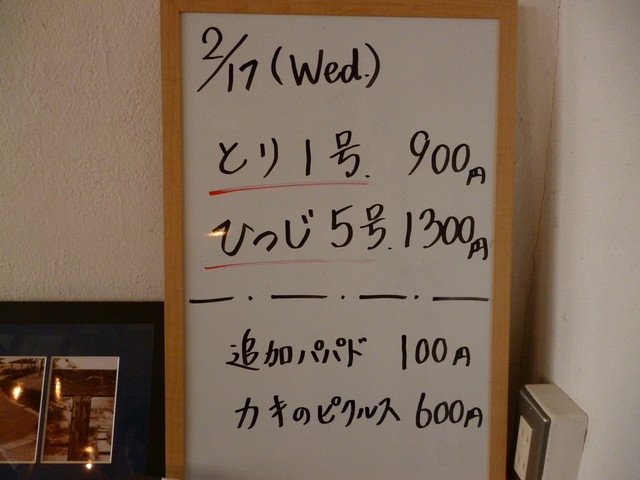 2/17(Wed.)
とり1号. 900円
ひつじ5号. 1300円
追加パパド 100円
カキのピクルス 600円